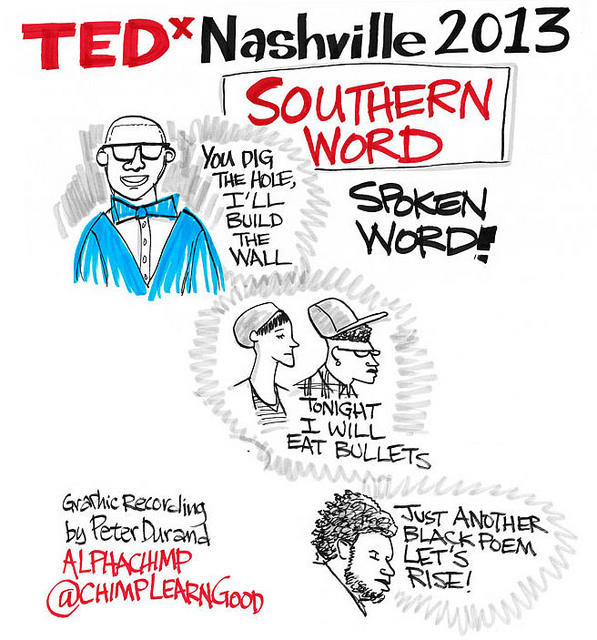 TEDx Nashville 2013
SOUTHERN
WORD
SPOKEN
WORD!
YOU DIG
THE HOLE,
I'LL
BUILD
THE
WALL
TONIGHT
I WILL
EAT BULLETS
JUST ANOTHER
BLACK POEM
LET'S
RISE!
Graphic Recording
by Peter Durand
ALPHACHIMP
@CHIMPLEARNGOOD